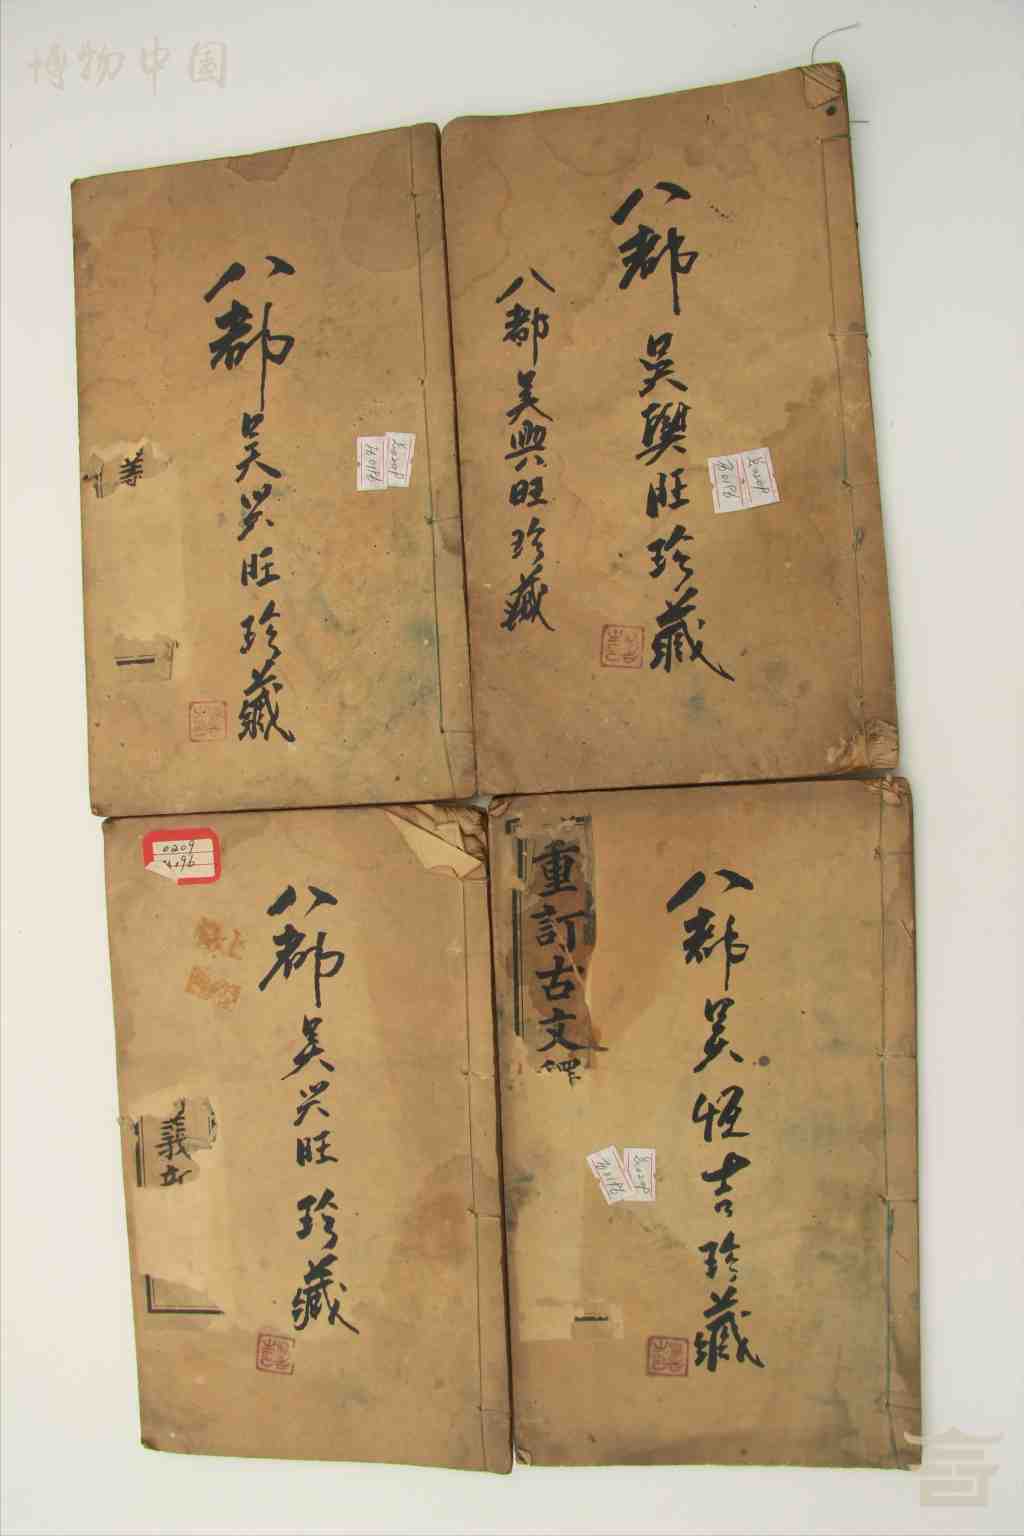 博物中国
八都吴兴旺珍藏
等
八都吳興旺珍藏
八都吳興旺珍藏
0209
八都吴兴旺珍藏
義
重訂古文釋
八都吴恒吉珍藏